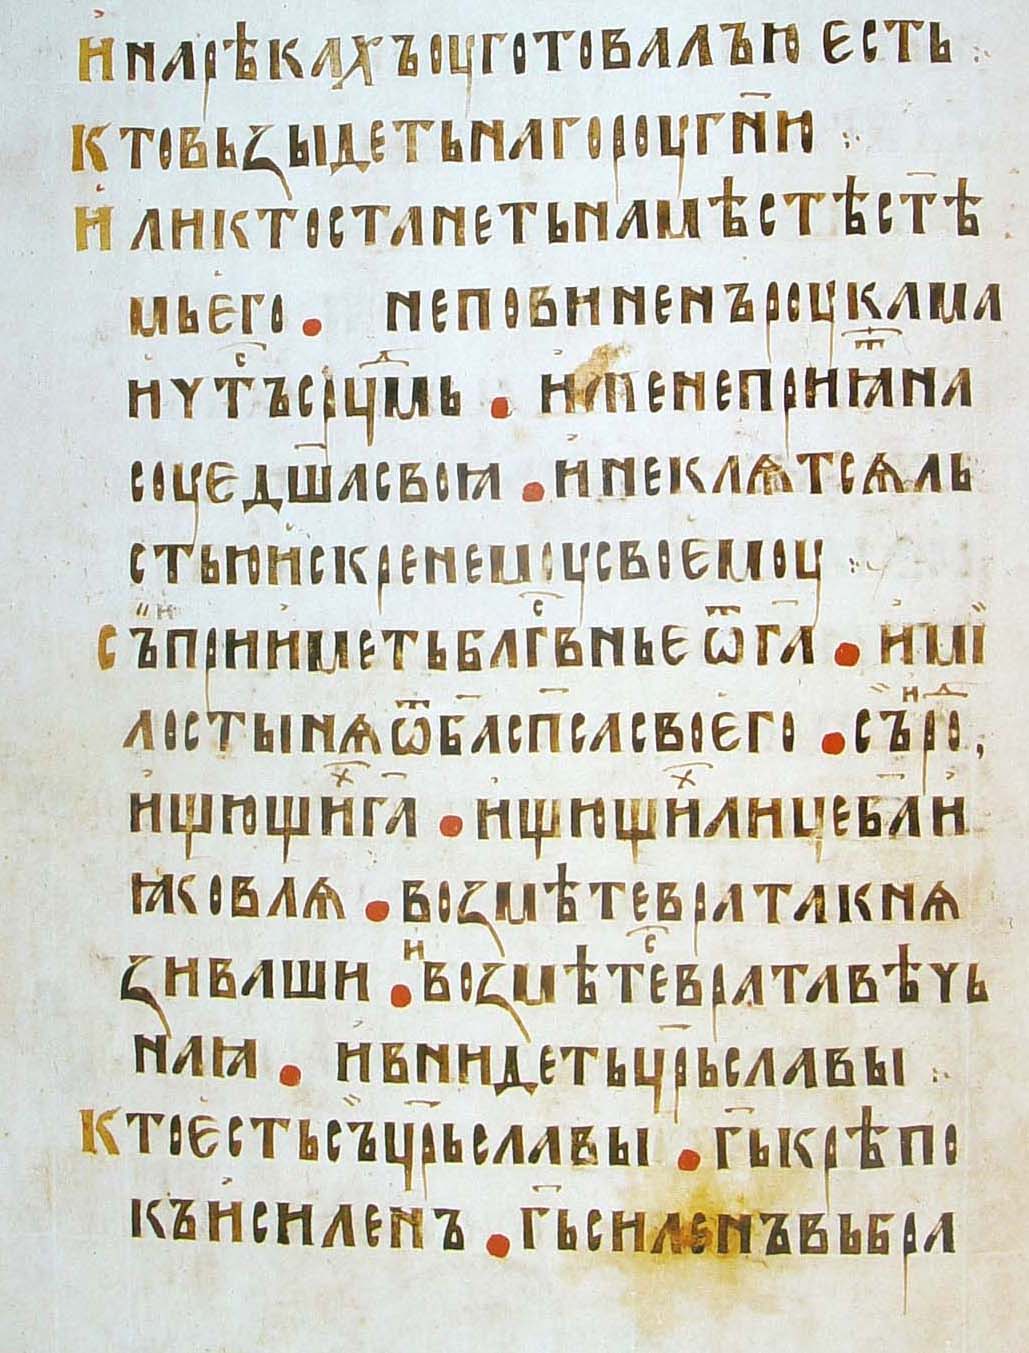 и҆ нарѣкахъоуготовалъю есть ⁘
ктовьꙁыдетьнагороугн҃ю ⁘
и҆ ликтостанетьнамѣстѣст҃ѣ
мьѥго • неповиненъроукама
и҆ чтⷭ҇ъсрцⷣмь • и҆женеприꙗⷮна
соуєдш҃асвоꙗ • и҆неклѧтсѧль
стьюи҆скренемоусвоємоу ⁘
съⷩприи҆метьблгⷭ҇вньеѿг҃а • и҆мї
лостынѧѿб҃асп҃сасвоего • съⷩ҇роⷣ
и҆щющиⷯг҃а • и҆щющиⷯлицеб҃аи҆
ꙗковлѧ • воꙁмѣтевратакнѧ
ꙁиваши • иⷩвоꙁмѣтеⷭ҇вратавѣчь
наꙗ • и҆внидетьцр҃ьславы ⁘
ктоестьсъцр҃ьславы • г҃ькрѣпо
къи҆силенъ • г҃ьсиленъвьбра